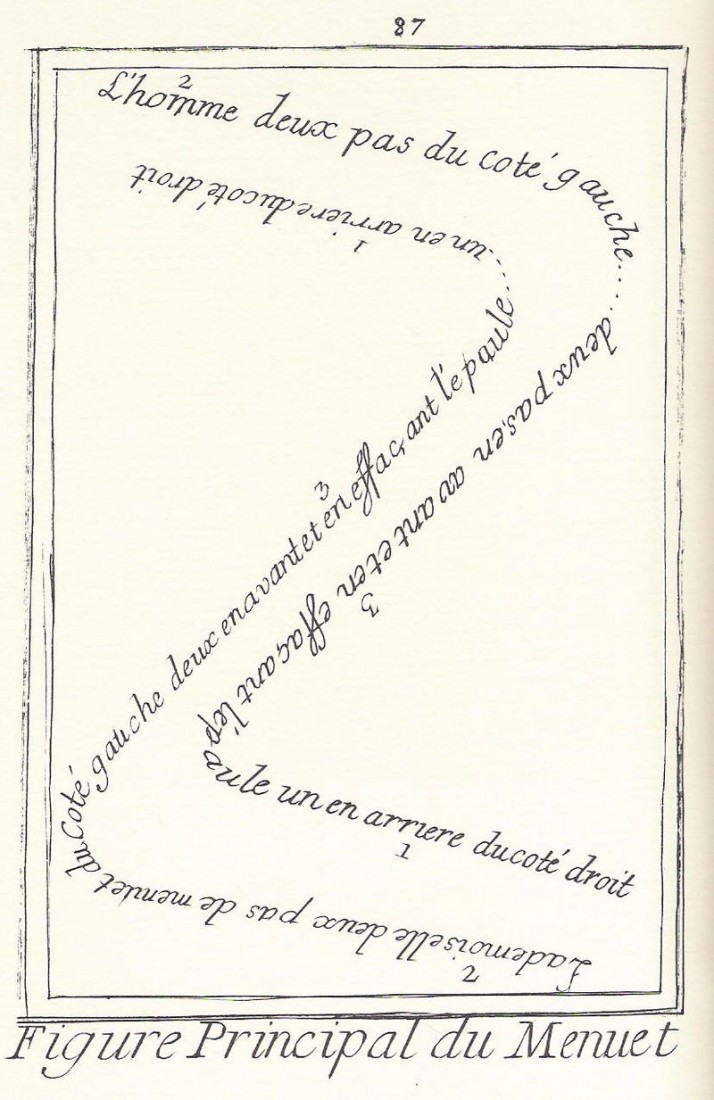 87
2
L'homme deux pas du coté gauche....
deux pas,en avant et en effaçant l'épaule
3
un en arriere ducoté droit
1
2
Lademoiselle deux pas de menuet
du coté gauche deux en avant et en effaçant l'épaule...
3
un en arriere ducoté droit
1
Figure Principal du Menuet